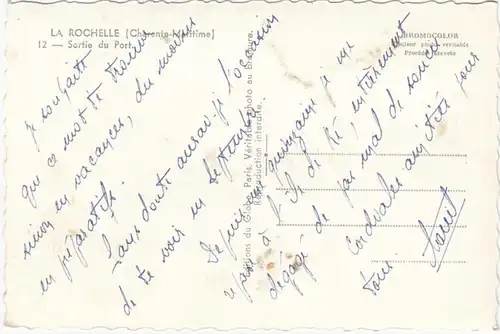 LA ROCHELLE (Charente-Maritime)
12 — Sortie du Port
BROMOCOLOR
Procédé breveté
Editions du Globe, Paris. Véritable photo au Bromure.
Reproduction interdite.
Je souhaite
que ce mot te trouve
sinon en vacances, du moins
en préparatifs.
Sans doute aurai-je l'occasion
de te voir en septembre.
Depuis une quinzaine je me
repose à l'Ile de Ré, entièrement
dégagé de pas mal de soucis
Cordiales amitiés pour
tous